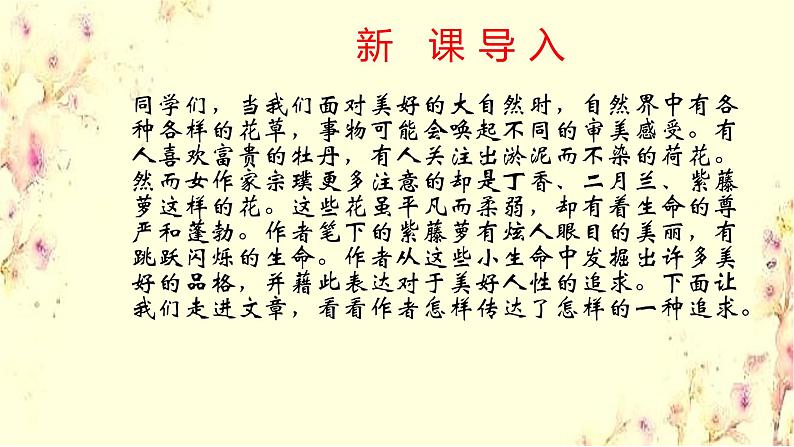 新 课 导 入
同学们，当我们面对美好的大自然时，自然界中有各
种各样的花草，事物可能会唤起不同的审美感受。有
人喜欢富贵的牡丹，有人关注出淤泥而不染的荷花。
然而女作家宗璞更多注意的却是丁香、二月兰、紫藤
萝这样的花。这些花虽平凡而柔弱，却有着生命的尊
严和蓬勃。作者笔下的紫藤萝有炫人眼目的美丽，有
跳跃闪烁的生命。作者从这些小生命中发掘出许多美
好的品格，并藉此表达对于美好人性的追求。下面让
我们走进文章，看看作者怎样传达了怎样的一种追求。